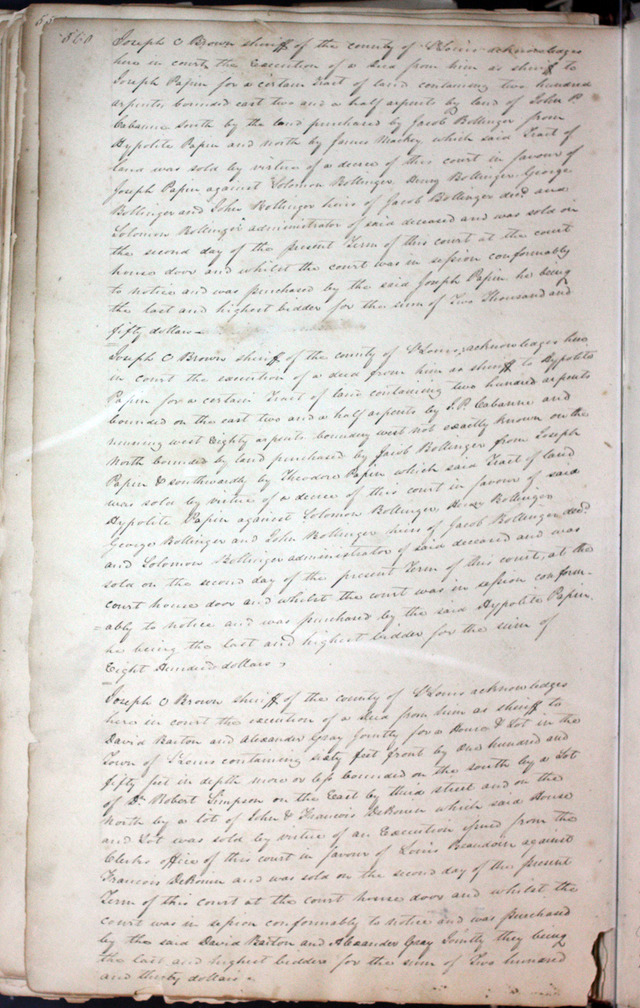 560
Joseph C Brown sheriff of the county of St Louis acknowledges
here in court the Execution of a deed from him as sheriff to
Joseph Papin for a certain Tract of land containing two hundred
arpents bounded east two and a half arpents by land of John P
Cabanne South by the land purchased by Jacob Bollinger from
Hypolite Papin and north by James Mackey which said Tract of
land was sold by virtue of a decree of this court in favour of
Joseph Papin against Solomon Bollinger, Henry Bollinger George
Bollinger and John Bollinger heirs of Jacob Bollinger decd and
Solomon Bollinger administrator of said deceased and was sold on
the second day of the present Term of this court at the court
house door and whilst the court was in session conformably
to notice and was purchased by the said Joseph Papin he being
the last and highest bidder for the sum of Two Thousand and
fifty dollars
Joseph C Brown sheriff of the county of St Louis, acknowledges here
in court the execution of a deed from him as sheriff to Hypolite
Papin for a certain Tract of land containing two hundred arpents
bounded on the east two and a half arpents by J. P. Cabanne and
running west Eighty arpents boundary west not exactly known on the
North bounded by land purchased by Jacob Bollinger from Joseph
Papin & southwardly by Theodore Papin which said Tract of land
was sold by virtue of a decree of this court in favour of said
Hypolite Papin against Solomon Bollinger, Henry Bollinger
George Bollinger and John Bollinger heirs of Jacob Bollinger decd
and Solomon Bollinger administrator of said deceased and was
sold on the second day of the present Term of this court, at the
court house door and whilst the court was in session conform-
=ably to notice and was purchased by the said Hypolite Papin,
he being the last and highest bidder for the sum of
Eight Hundred dollars,
Joseph C Brown sheriff of the county of St Louis acknowledges
here in court the execution of a deed from him as sheriff to
David Barton and Alexander Gray Jointly for a House & Lot in the
Town of St Louis containing sixty feet front by one hundred and
fifty feet in depth more or less bounded on the south by a Lot
of Dr Robert Simpson on the East by third street and on the
North by a lot of John & Francois DeRouin which said House
and Lot was sold by virtue of an Execution issued from the
Clerks office of this court in favour of Louis Beaudoin against
Francois DeRouin and was sold on the second day of the present
Term of this court at the court house door and whilst the
court was in session conformably to notice and was purchased
by the said David Barton and Alexander Gray Jointly they being
the last and highest bidders for the sum of Two hundred
and thirty dollars